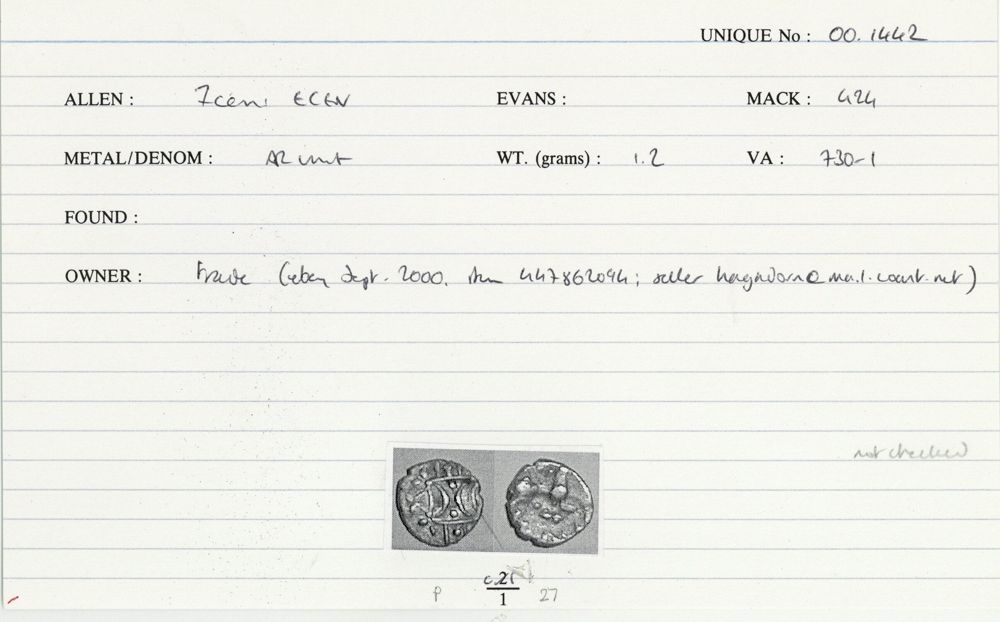 UNIQUE No : 00.1442
ALLEN : Iceni ECEN EVANS : MACK : 424
METAL/DENOM : AR unit WT. (grams) : 1.2 VA : 730-1
FOUND :
OWNER : Trade (ebay Sept. 2000. item 447862094; seller
not checked
c.21
P 1 27